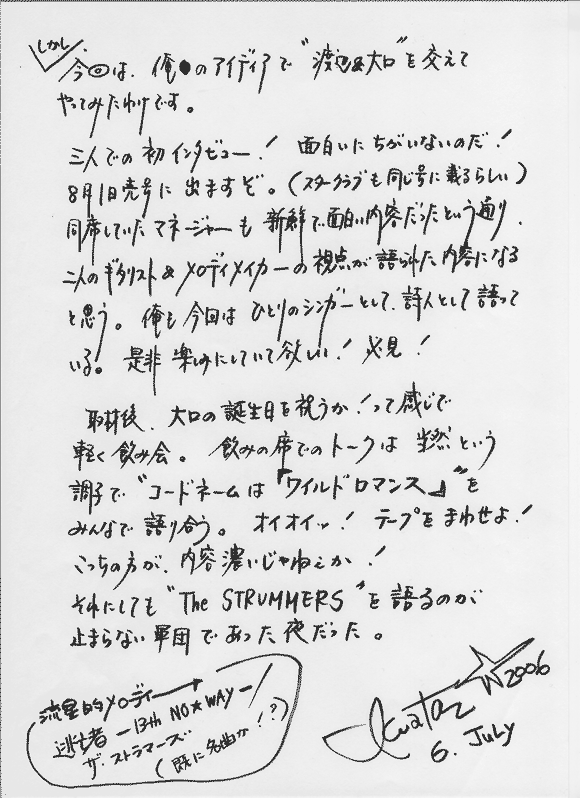 しかし、
今回は、俺●のアイディアで“渡辺&大口”を交えて
やってみたわけです。
三人での初インタビュー！ 面白いにちがいないのだ！
8月1日売号に出ますぞ。（スタークラブも同じ号に載るらしい）
同席していたマネージャーも新鮮で面白い内容だったという通り、
二人のギタリスト&メロディメイカーの視点が語られた内容になる
と思う。俺も今回はひとりのシンガーとして、詩人として語って
いる。是非楽しみにしていて欲しい！必見！
取材後、大口の誕生日を祝うか！って感じで
軽く飲み会。飲みの席でのトークは当然という
調子で“コードネームは『ワイルドロマンス』”を
みんなで語り合う。オイオイッ！テープをまわせよ！
こっちの方が、内容濃いじゃねえか！
それにしても“The STRUMMERS”を語るのが
止まらない軍団であった夜だった。
流星的メロディー
逃亡者 -13th NO★WAY-
ザ・ストラマーズ
（既に名曲か！？）
2006
6. July